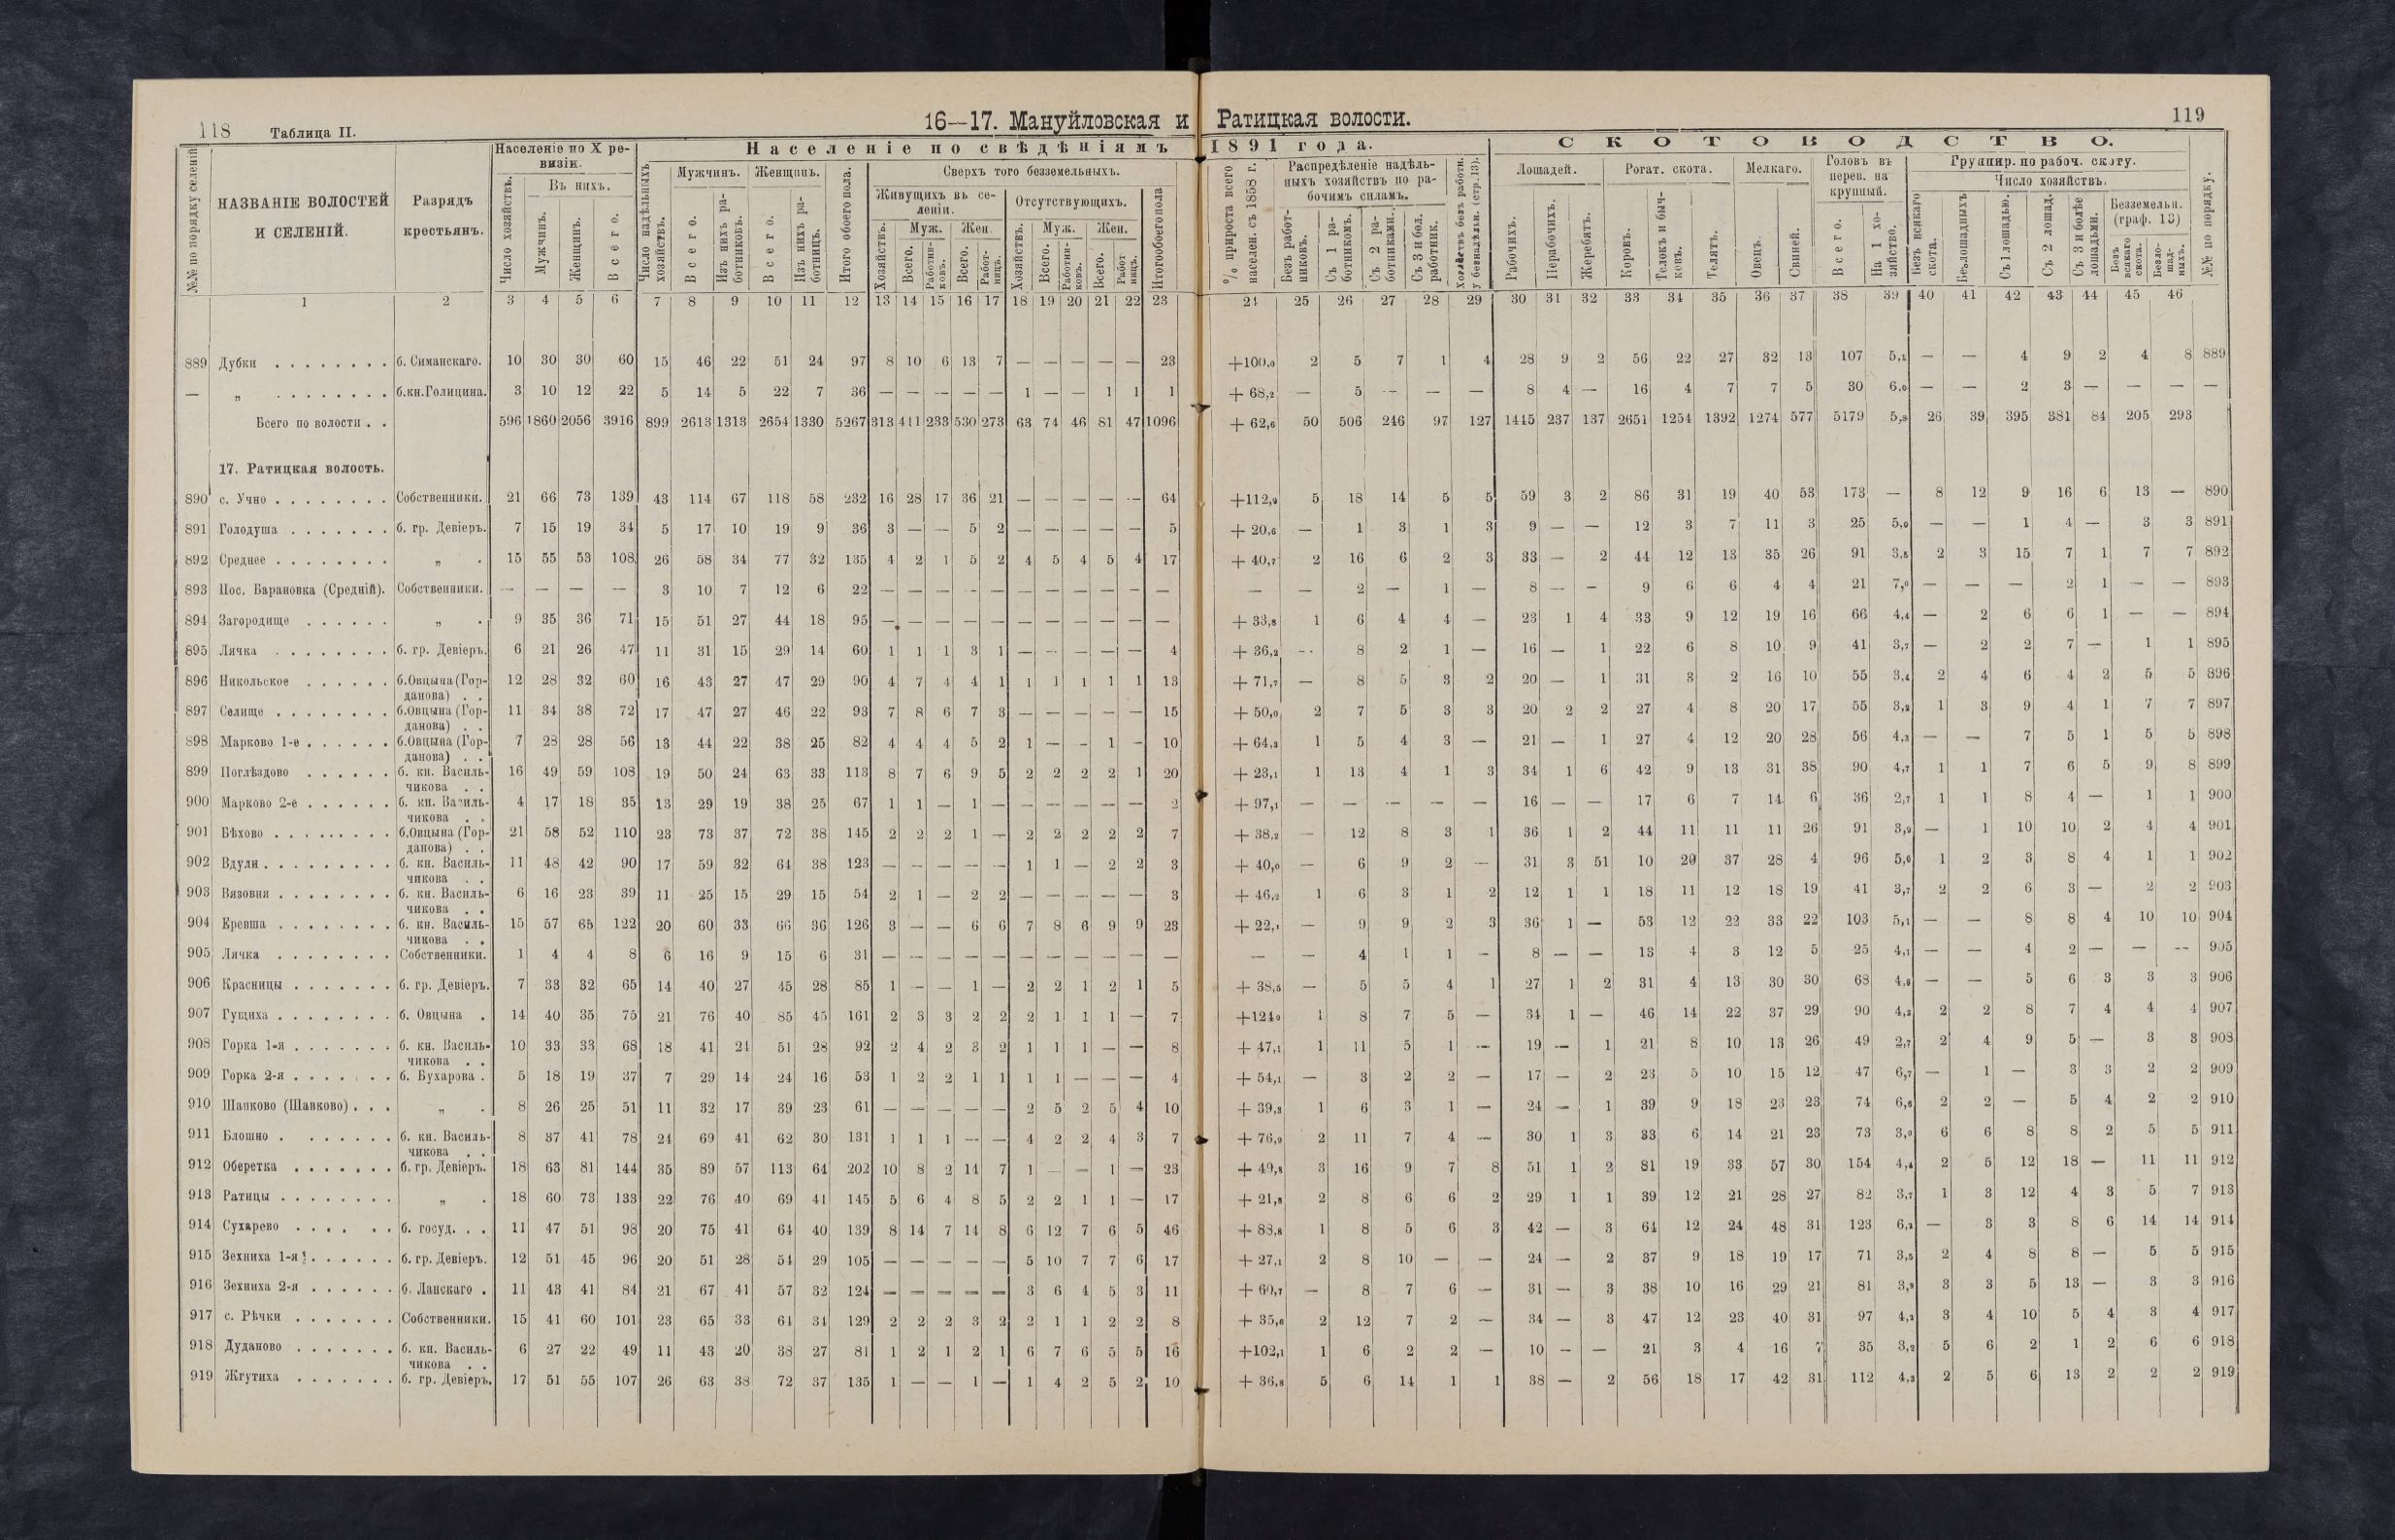 118 Таблица II.
16—17. Мануйловская и Ратицкая волости.
119
№№ по порядку селеній
НАЗВАНІЕ ВОЛОСТЕЙ И СЕЛЕНІЙ.
Разрядъ крестьянъ.
Населеніе по X ревизіи.
Число хозяйствъ.
Въ нихъ.
Мужчинъ.
Женщинъ.
Всего.
Населеніе по свѣдѣніямъ 1891 года.
Число надѣльныхъ хозяйствъ.
Мужчинъ.
Всего.
Изъ нихъ работниковъ.
Женщинъ.
Всего.
Изъ нихъ работницъ.
Итого обоего пола.
Сверхъ того безземельныхъ.
Живущихъ въ селеніи.
Хозяйствъ.
Муж.
Всего.
Работниковъ.
Жен.
Всего.
Работницъ.
Отсутствующихъ.
Хозяйствъ.
Муж.
Всего.
Работниковъ.
Жен.
Всего.
Работницъ.
Итого обоего пола
% прироста всего населен. съ 1858 г.
Распредѣленіе надѣльныхъ хозяйствъ по рабочимъ силамъ.
Безъ работниковъ.
Съ 1 работникомъ.
Съ 2 работниками.
Съ 3 и бол. работник.
Хозяйствъ безъ работн. у безнадѣльн. (стр. 13).
СКОТОВОДСТВО.
Лошадей.
Рабочихъ.
Нерабочихъ.
Жеребятъ.
Рогат. скота.
Коровъ.
Телокъ и бычковъ.
Телятъ.
Мелкаго.
Овецъ.
Свиней.
Головъ въ перев. на крупный.
Всего.
На 1 хозяйство.
Группир. по рабоч. скоту.
Число хозяйствъ.
Безъ всякаго скота.
Безлошадныхъ
Съ 1 лошадью.
Съ 2 лошад.
Съ 3 и болѣе лошадьми.
Безземельн. (граф. 13)
Безъ всякаго скота.
Безлошадныхъ.
№№ по порядку.
1 2 3 4 5 6 7 8 9 10 11 12 13 14 15 16 17 18 19 20 21 22 23 24 25 26 27 28 29 30 31 32 33 34 35 36 37 38 39 40 41 42 43 44 45 46
889 Дубки . . . . . . . . б. Симанскаго. 10 30 30 60 15 46 22 51 24 97 8 10 6 13 7 — — — — — 23 +100,0 2 5 7 1 4 28 9 2 56 22 27 32 13 107 5,1 — — 4 9 2 4 8 889
— „ . . . . . . . . б.кн.Голицина. 3 10 12 22 5 14 5 22 7 36 — — — — — 1 — — 1 1 1 + 68,2 — 5 — — — 8 4 — 16 4 7 7 5 30 6,0 — — 2 3 — — — —
Всего по волости . . 596 1860 2056 3916 899 2613 1313 2654 1330 5267 313 411 233 530 273 63 74 46 81 47 1096 + 62,6 50 506 246 97 127 1445 237 137 2651 1254 1392 1274 577 5179 5,8 26 39 395 381 84 205 293
17. Ратицкая волость.
890 с. Учно . . . . . . . . Собственники. 21 66 73 139 43 114 67 118 58 232 16 28 17 36 21 — — — — — 64 +112,9 5 18 14 5 5 59 3 2 86 31 19 40 53 173 — 8 12 9 16 6 13 — 890
891 Голодуша . . . . . . . б. гр. Девіеръ. 7 15 19 34 5 17 10 19 9 36 3 — — 5 2 — — — — — 5 + 20,6 — 1 3 1 3 9 — — 12 3 7 11 3 25 5,0 — — 1 4 — 3 3 891
892 Среднее . . . . . . . . „ . 15 55 53 108 26 58 34 77 32 135 4 2 1 5 2 4 5 4 5 4 17 + 40,7 2 16 6 2 3 33 — 2 44 12 13 35 26 91 3,5 2 3 15 7 1 7 7 892
893 Пос. Барановка (Средній). Собственники. — — — — 3 10 7 12 6 22 — — — — — — — — — — — — — 2 — 1 — 8 — — 9 6 6 4 4 21 7,0 — — — 2 1 — — 893
894 Загородище . . . . . . „ . 9 35 36 71 15 51 27 44 18 95 — — — — — — — — — — — + 33,8 1 6 4 4 — 23 1 4 33 9 12 19 16 66 4,4 — 2 6 6 1 — — 894
895 Лячка . . . . . . . . б. гр. Девіеръ. 6 21 26 47 11 31 15 29 14 60 1 1 1 3 1 — — — — — 4 + 36,2 — 8 2 1 — 16 — 1 22 6 8 10 9 41 3,7 — 2 2 7 — 1 1 895
896 Никольское . . . . . . б.Овцына (Горданова) . . 12 28 32 60 16 43 27 47 29 90 4 7 4 4 1 1 1 1 1 1 13 + 71,7 — 8 5 3 2 20 — 1 31 3 2 16 10 55 3,4 2 4 6 4 2 5 5 896
897 Селище . . . . . . . . б.Овцына (Горданова) . . 11 34 38 72 17 47 27 46 22 93 7 8 6 7 3 — — — — — 15 + 50,0 2 7 5 3 3 20 2 2 27 4 8 20 17 55 3,2 1 3 9 4 1 7 7 897
898 Марково 1-е . . . . . . б.Овцына (Горданова) . . 7 28 28 56 13 44 22 38 25 82 4 4 4 5 2 1 — — 1 — 10 + 64,3 1 5 4 3 — 21 — 1 27 4 12 20 28 56 4,3 — — 7 5 1 5 5 898
899 Поглѣздово . . . . . . б. кн. Васильчикова . . 16 49 59 108 19 50 24 63 33 113 8 7 6 9 5 2 2 2 2 1 20 + 23,1 1 13 4 1 3 34 1 6 42 9 13 31 38 90 4,7 1 1 7 6 5 9 8 899
900 Марково 2-е . . . . . . б. кн. Васильчикова . . 4 17 18 35 13 29 19 38 25 67 1 1 — 1 — — — — — — 2 + 97,1 — — — — — 16 — — 17 6 7 14 6 36 2,7 1 1 8 4 — 1 1 900
901 Бѣхово . . . . . . . . . б.Овцына (Горданова) . . 21 58 52 110 23 73 37 72 38 145 2 2 2 1 — 2 2 2 2 2 7 + 38,2 — 12 8 3 1 36 1 2 44 11 11 11 26 91 3,9 — 1 10 10 2 4 4 901
902 Вдули . . . . . . . . . б. кн. Васильчикова . . 11 48 42 90 17 59 32 64 38 123 — — — — — 1 1 — 2 2 3 + 40,0 — 6 9 2 — 31 3 51 10 20 37 28 4 96 5,6 1 2 3 8 4 1 1 902
903 Вязовня . . . . . . . . б. кн. Васильчикова . . 6 16 23 39 11 25 15 29 15 54 2 1 — 2 2 — — — — — 3 + 46,2 1 6 3 1 2 12 1 1 18 11 12 18 19 41 3,7 2 2 6 3 — 2 2 903
904 Еревша . . . . . . . . б. кн. Васильчикова . . 15 57 65 122 20 60 33 66 36 126 3 — — 6 6 7 8 6 9 9 23 + 22,1 — 9 9 2 3 36 1 — 53 12 22 33 22 103 5,1 — — 8 8 4 10 10 904
905 Лячка . . . . . . . . Собственники. 1 4 4 8 6 16 9 15 6 31 — — — — — — — — — — — — — 4 1 1 — 8 — — 13 4 3 12 5 25 4,1 — — 4 2 — — — 905
906 Красницы . . . . . . . б. гр. Девіеръ. 7 33 32 65 14 40 27 45 28 85 1 — — 1 — 2 2 1 2 1 5 + 38,5 — 5 5 4 1 27 1 2 31 4 13 30 30 68 4,8 — — 5 6 3 3 3 906
907 Гущиха . . . . . . . . б. Овцына . 14 40 35 75 21 76 40 85 45 161 2 3 3 2 2 2 1 1 1 — 7 +124,0 1 8 7 5 — 34 1 — 46 14 22 37 29 90 4,3 2 2 8 7 4 4 4 907
908 Горка 1-я . . . . . . . б. кн. Васильчикова . . 10 33 33 68 18 41 24 51 28 92 2 4 2 3 2 1 1 1 — — 8 + 47,1 1 11 5 1 — 19 — 1 21 8 10 13 26 49 2,7 2 4 9 5 — 3 3 908
909 Горка 2-я . . . . . . . б. Бухарова . 5 18 19 37 7 29 14 24 16 53 1 2 2 1 1 1 1 — — — 4 + 54,1 — 3 2 2 — 17 — 2 23 5 10 15 12 47 6,7 — 1 — 3 3 2 2 909
910 Шапково (Шавково) . . . „ . 8 26 25 51 11 32 17 39 23 61 — — — — — 2 5 2 5 4 10 + 39,3 1 6 3 1 — 24 — 1 39 9 18 23 23 74 6,6 2 2 — 5 4 2 2 910
911 Блошно . . . . . . . б. кн. Васильчикова . . 8 37 41 78 24 69 41 62 30 131 1 1 1 — — 4 2 2 4 3 7 + 76,9 2 11 7 4 — 30 1 3 33 6 14 21 23 73 3,0 6 6 8 8 2 5 5 911
912 Оберетка . . . . . . . б. гр. Девіеръ. 18 63 81 144 35 89 57 113 64 202 10 8 2 14 7 1 — — 1 — 23 + 49,8 3 16 9 7 8 51 1 2 81 19 33 57 30 154 4,4 2 5 12 18 — 11 11 912
913 Ратицы . . . . . . . . „ . 18 60 73 133 22 76 40 69 41 145 5 6 4 8 5 2 2 1 1 — 17 + 21,8 2 8 6 6 2 29 1 1 39 12 21 28 27 82 3,7 1 3 12 4 3 5 7 913
914 Сухарево . . . . . . б. госуд. . . 11 47 51 98 20 75 41 64 40 139 8 14 7 14 8 6 12 7 6 5 46 + 88,8 1 8 5 6 3 42 — 3 64 12 24 48 31 123 6,2 — 3 3 8 6 14 14 914
915 Зехниха 1-я . . . . . . б. гр. Девіеръ. 12 51 45 96 20 51 28 54 29 105 — — — — — 5 10 7 7 6 17 + 27,1 2 8 10 — — 24 — 2 37 9 18 19 17 71 3,5 2 4 8 8 — 5 5 915
916 Зехниха 2-я . . . . . . б. Ланскаго . 11 43 41 84 21 67 41 57 32 124 — — — — — 3 6 4 5 3 11 + 60,7 — 8 7 6 — 31 — 3 38 10 16 29 21 81 3,9 3 3 5 13 — 3 3 916
917 с. Рѣчки . . . . . . . Собственники. 15 41 60 101 23 65 33 64 34 129 2 2 2 3 2 2 1 1 2 2 8 + 35,6 2 12 7 2 — 34 — 3 47 12 23 40 31 97 4,2 3 4 10 5 4 3 4 917
918 Дуданово . . . . . . . б. кн. Васильчикова . . 6 27 22 49 11 43 20 38 27 81 1 2 1 2 1 6 7 6 5 5 16 +102,1 1 6 2 2 — 10 — — 21 3 4 16 7 35 3,2 5 6 2 1 2 6 6 918
919 Жгутиха . . . . . . . б. гр. Девіеръ. 17 51 55 107 26 63 38 72 37 135 1 — — 1 — 1 4 2 5 2 10 + 36,8 5 6 14 1 1 38 — 2 56 18 17 42 31 112 4,3 2 5 6 13 2 2 2 919